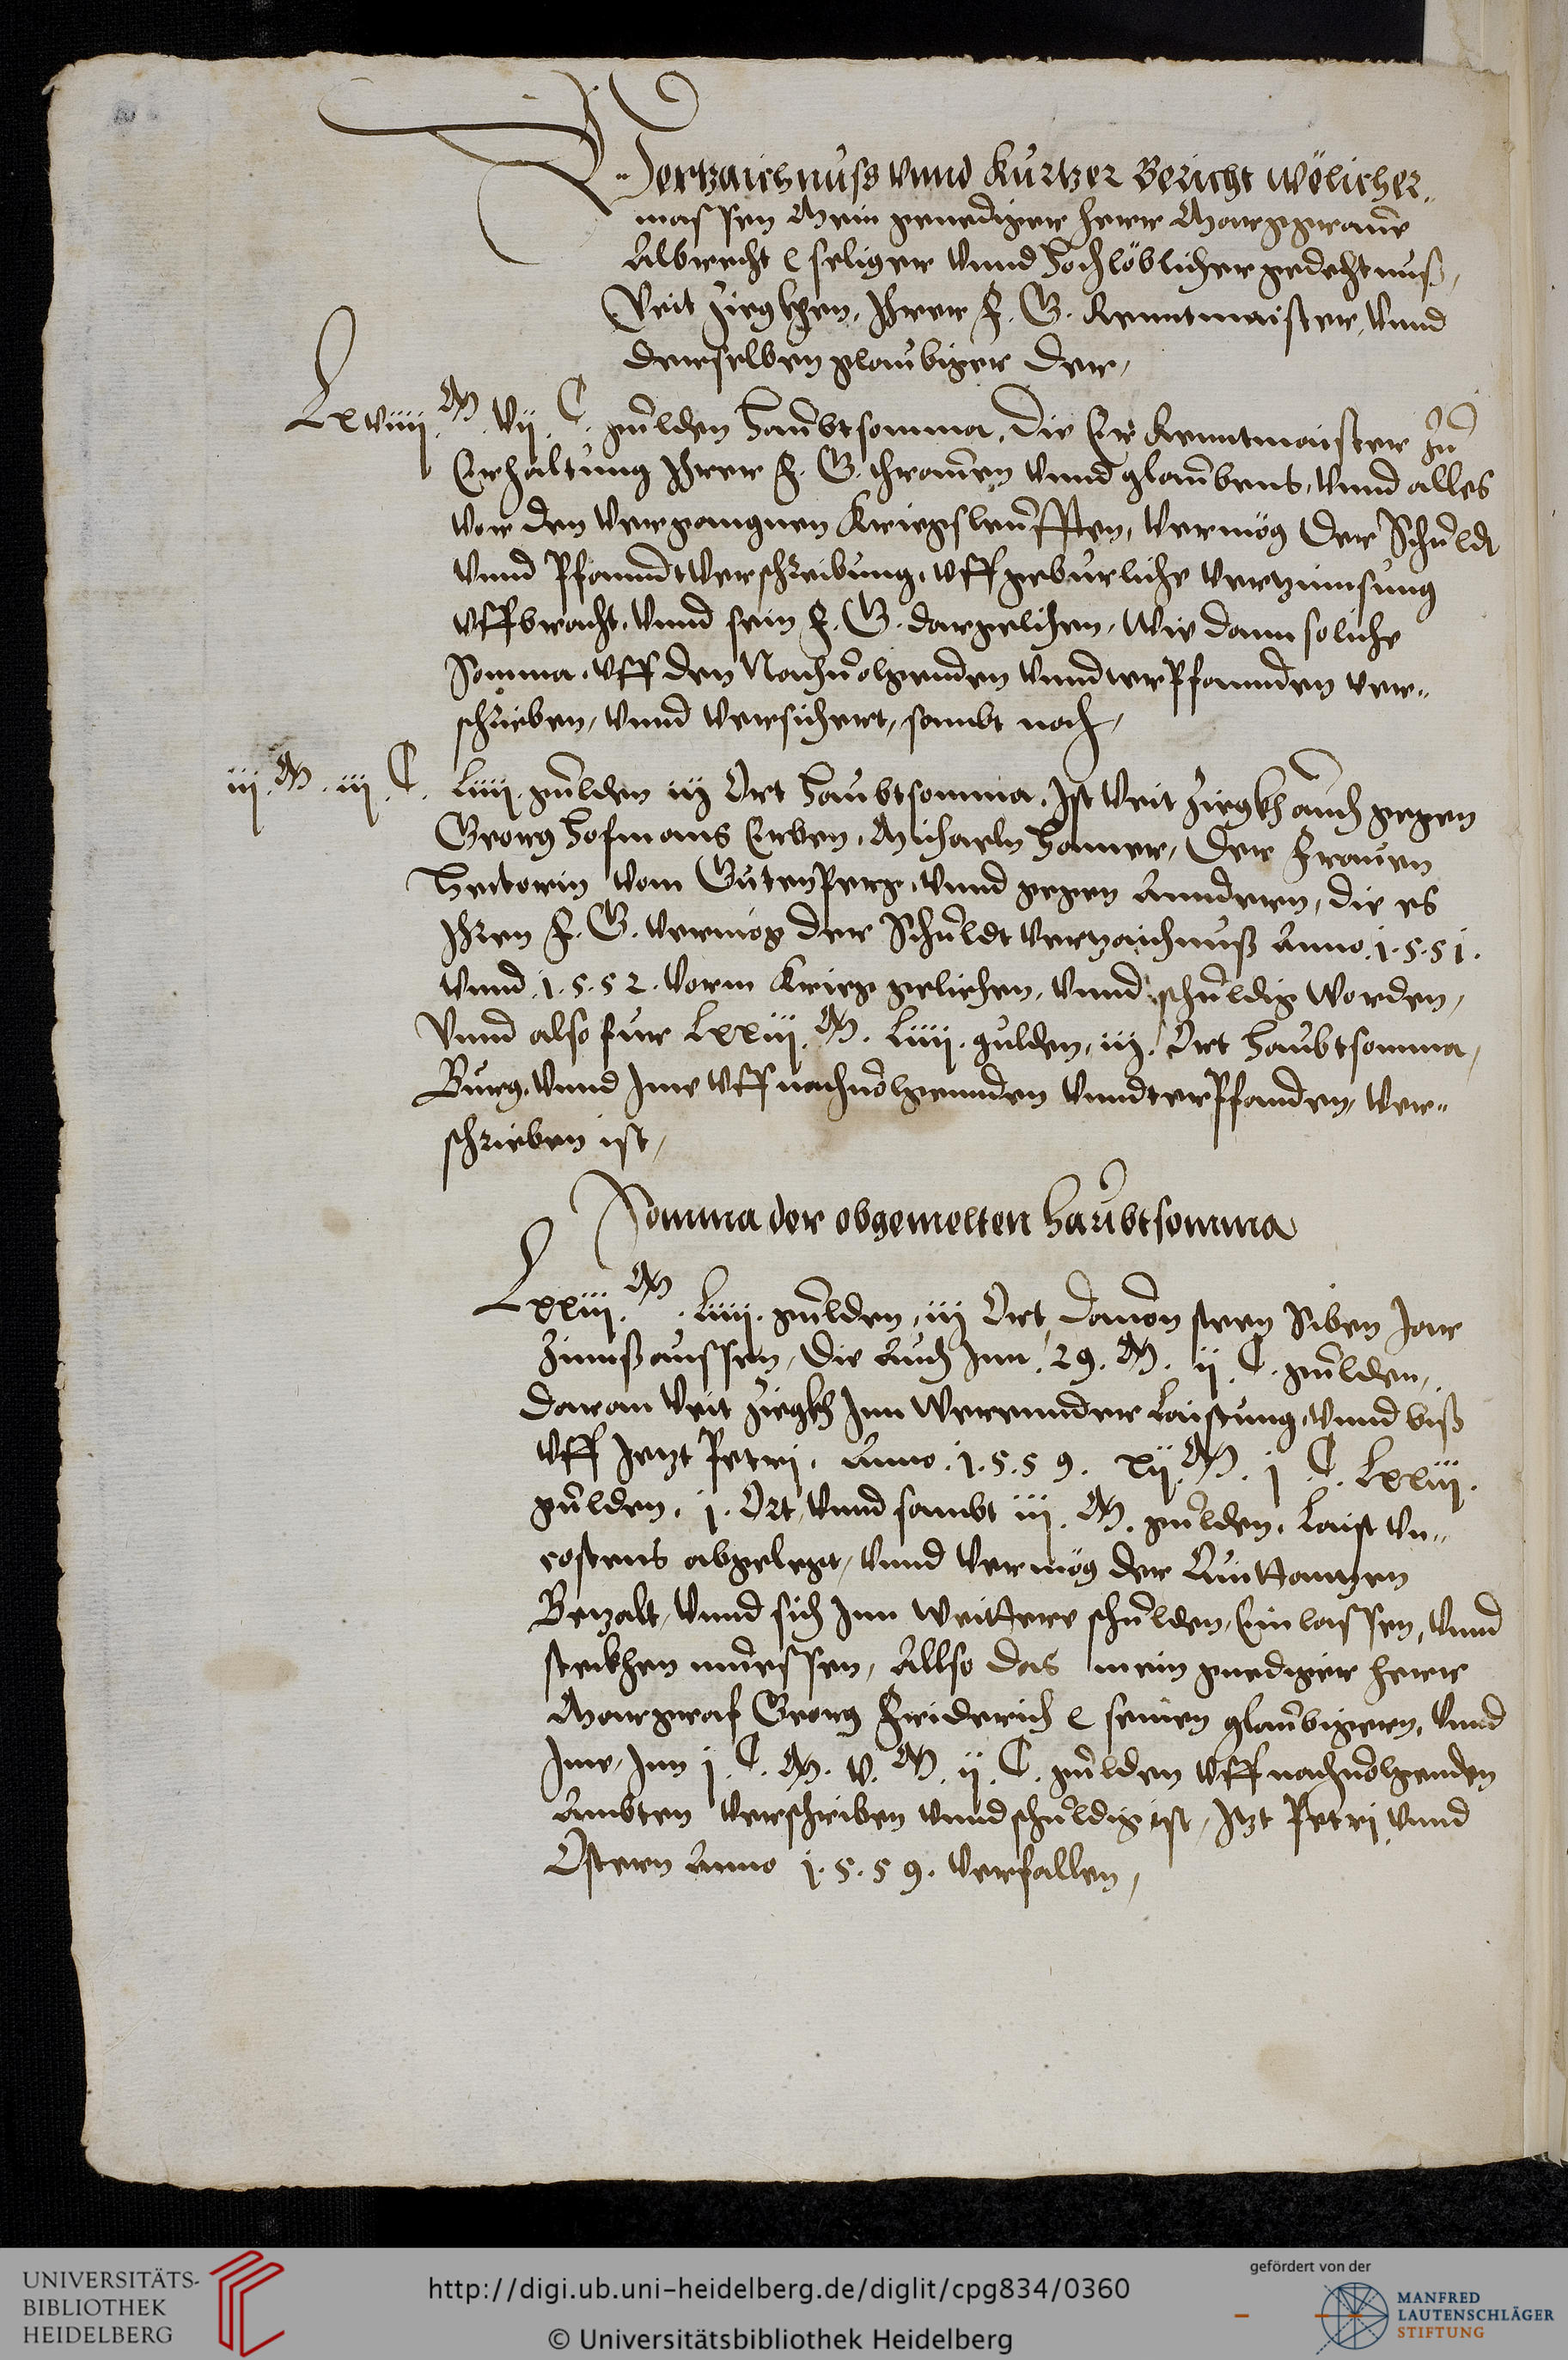 Vertzaichnuss vnnd Kurtzer Bericht wölicher„
massen Mein genediger herr Marggraue
Albrecht seliger vnnd hochlöblicher gedechtnuß,
Veit Ziegkhen, Ihrer F. G. Renntmaister, vnnd
derselben glaubiger der,
Lxviiij. M. vij. C. gulden Haubtsomma, die Er Renntmaister zu
Erhaltung Ihrer F. G. thrauen vnnd glaubens, vnnd alles
vor den vergangnen Kriegsleufften, vermög der Schuldt
vnnd Pfanndtverschreibung, vff geburliche vertzinnsung
vffbracht, vnnd sein F. G. dargelihen, Wie dann soliche
Somma, vff den Nachuolgenden vnnderPfannden ver„
schrieben, vnnd versichert, sambt noch,
iij. M. iij. C. Liiij. gulden iij Ort Haubtsomma, Ist Veit Ziegkh auch gegen
Georg Hofmans Erben, Michaeln Hamer, der Frauen
vom Gutenperg, vnnd gegen Anndern, die es
Ihren F. G. vermög der Schuldt vertzaichnuß Anno. 1.5.51.
vnnd 1.5.52. vorm Krieg gelichen, vnnd schuldig worden,
Vnnd also fur Lxxiij. M. Liiij. gulden, iij. Ort Haubtsomma,
Burg, vnnd Ime vff nachuolgennden vnndterPfanden, ver„
schrieben ist,
Somma der obgemelten Haubtsomma
Lxxiij. M. Liiij. gulden, iij Ort, dauon steen Siben Jar
Zinnß aussen, die Auch Inn 29. M. ij. C. gulden,
daran Veit Ziegkh Inn werennder Laistung, vnnd biß
vff Jetzt Petri, Anno. 1.5.59. xij. M. j. C. Lxxiij.
gulden, j. Ort, vnnd sambt iij. M. gulden, Laist vn„
costens abgelegt, vnnd vermög der Quittantzen
Betzalt, vnnd sich Inn weittere schulden, Einlassen, vnnd
stekhen muessen, Allso das mein gnediger herr
Margraf Georg Friderich seinen glaubigern, vnnd
Ime, Inn j. C. M. v. M. ij. C. gulden vff nachuolgenden
Ambten verschriben vnnd schuldig ist, Itzt Petri vnnd
Ostern Anno 1.5.59. verfallen,
UNIVERSITÄTS-
BIBLIOTHEK
HEIDELBERG
http://digi.ub.uni-heidelberg.de/diglit/cpg834/0360
© Universitätsbibliothek Heidelberg
gefördert von der
MANFRED
LAUTENSCHLÄGER
STIFTUNG